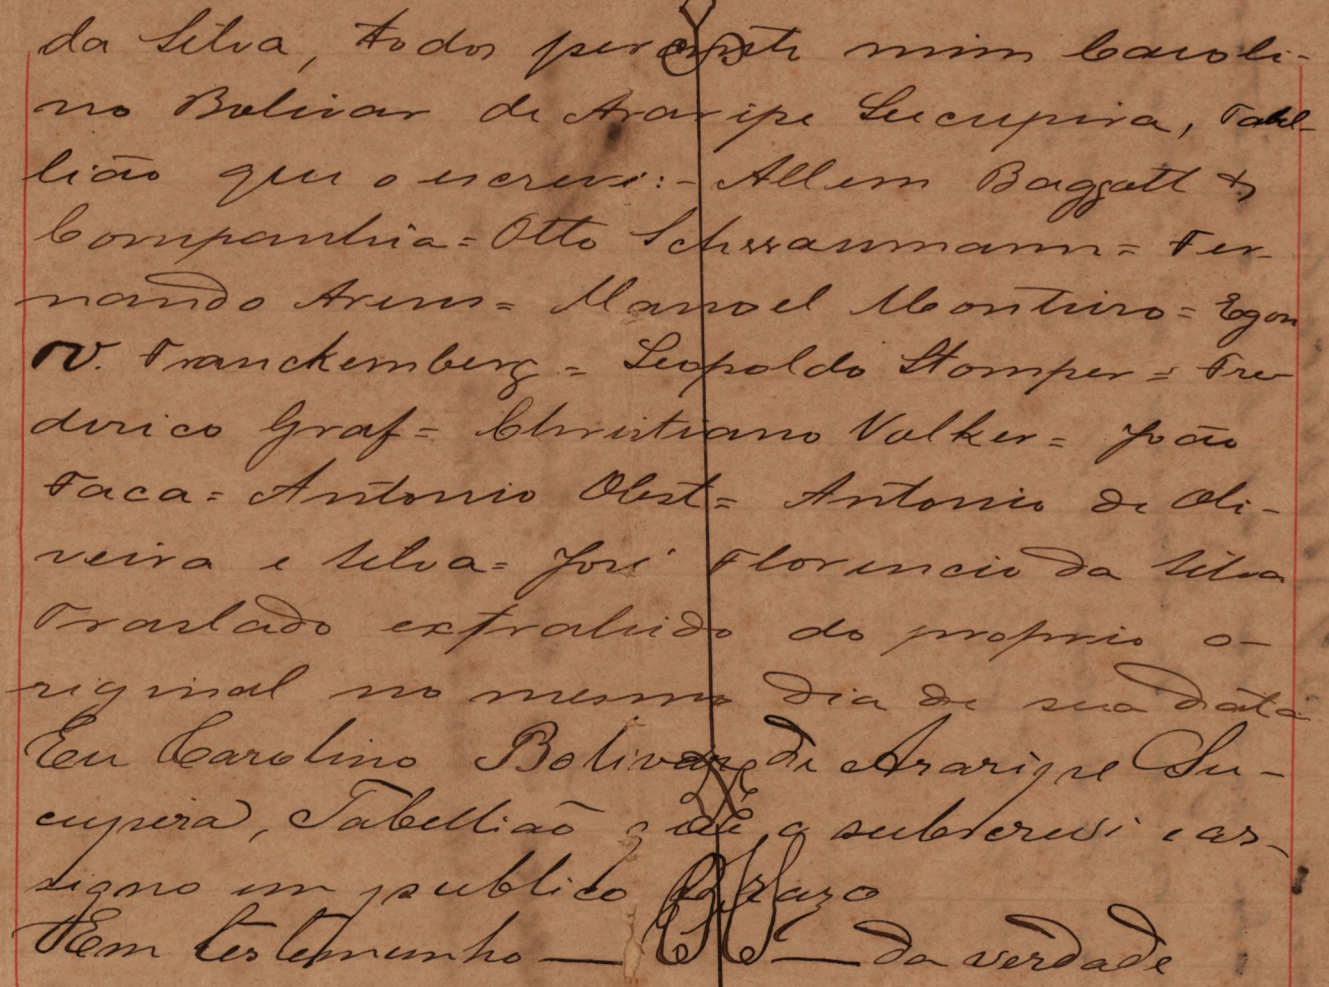 da Silva, todos perante mim Caroli-
no Bolivar de Araripe Sucupira, Tabel-
lião que o escrevi:- Allem Baggatt &
Companhia = Otto Schraumann = Fer-
nando Arens = Manoel Monteiro = Egon
V. Franckemberg = Leopoldo Stomper = Fre-
derico Graf = Christiano Volker = João
Faca = Antonio Obst = Antonio de Oli-
veira e Silva = José Florencio da Silva
Traslado extrahido do proprio o-
riginal no mesmo dia de sua data
Eu Carolino Bolivar de Araripe Su-
cupira, Tabellião que o subscrevi e as-
signo em publico e razo
Em testemunho — — da verdade